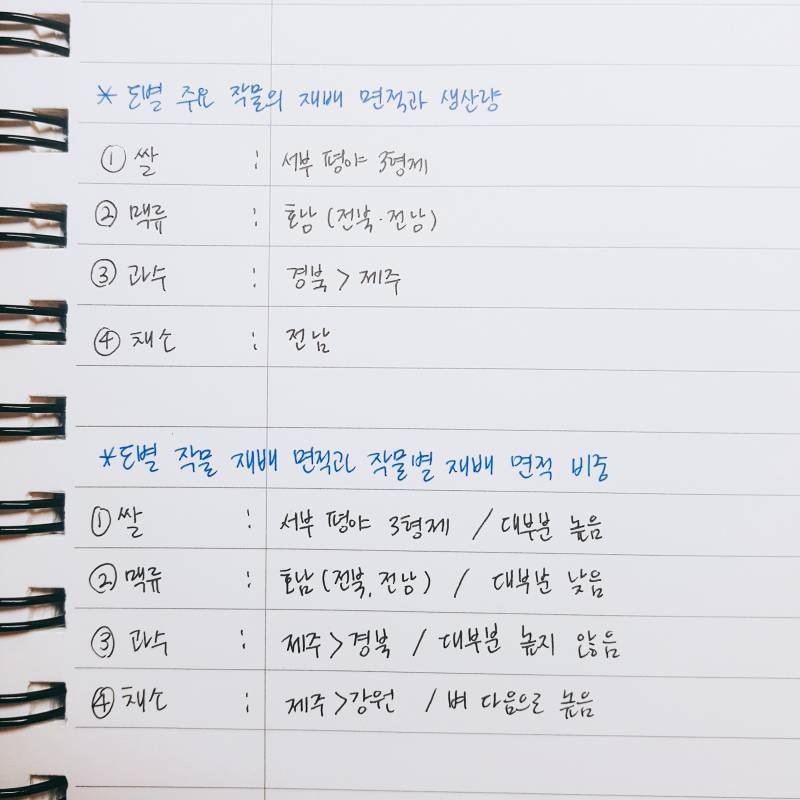 * 도별 주요 작물의 재배 면적과 생산량
① 쌀 : 서부 평야 3형제
② 맥류 : 호남 (전북·전남)
③ 과수 : 경북 > 제주
④ 채소 : 전남
* 도별 작물 재배 면적과 작물별 재배 면적 비중
① 쌀 : 서부 평야 3형제 / 대부분 높음
② 맥류 : 호남 (전북, 전남) / 대부분 낮음
③ 과수 : 제주 > 경북 / 대부분 높지 않음
④ 채소 : 제주 > 강원 / 벼 다음으로 높음